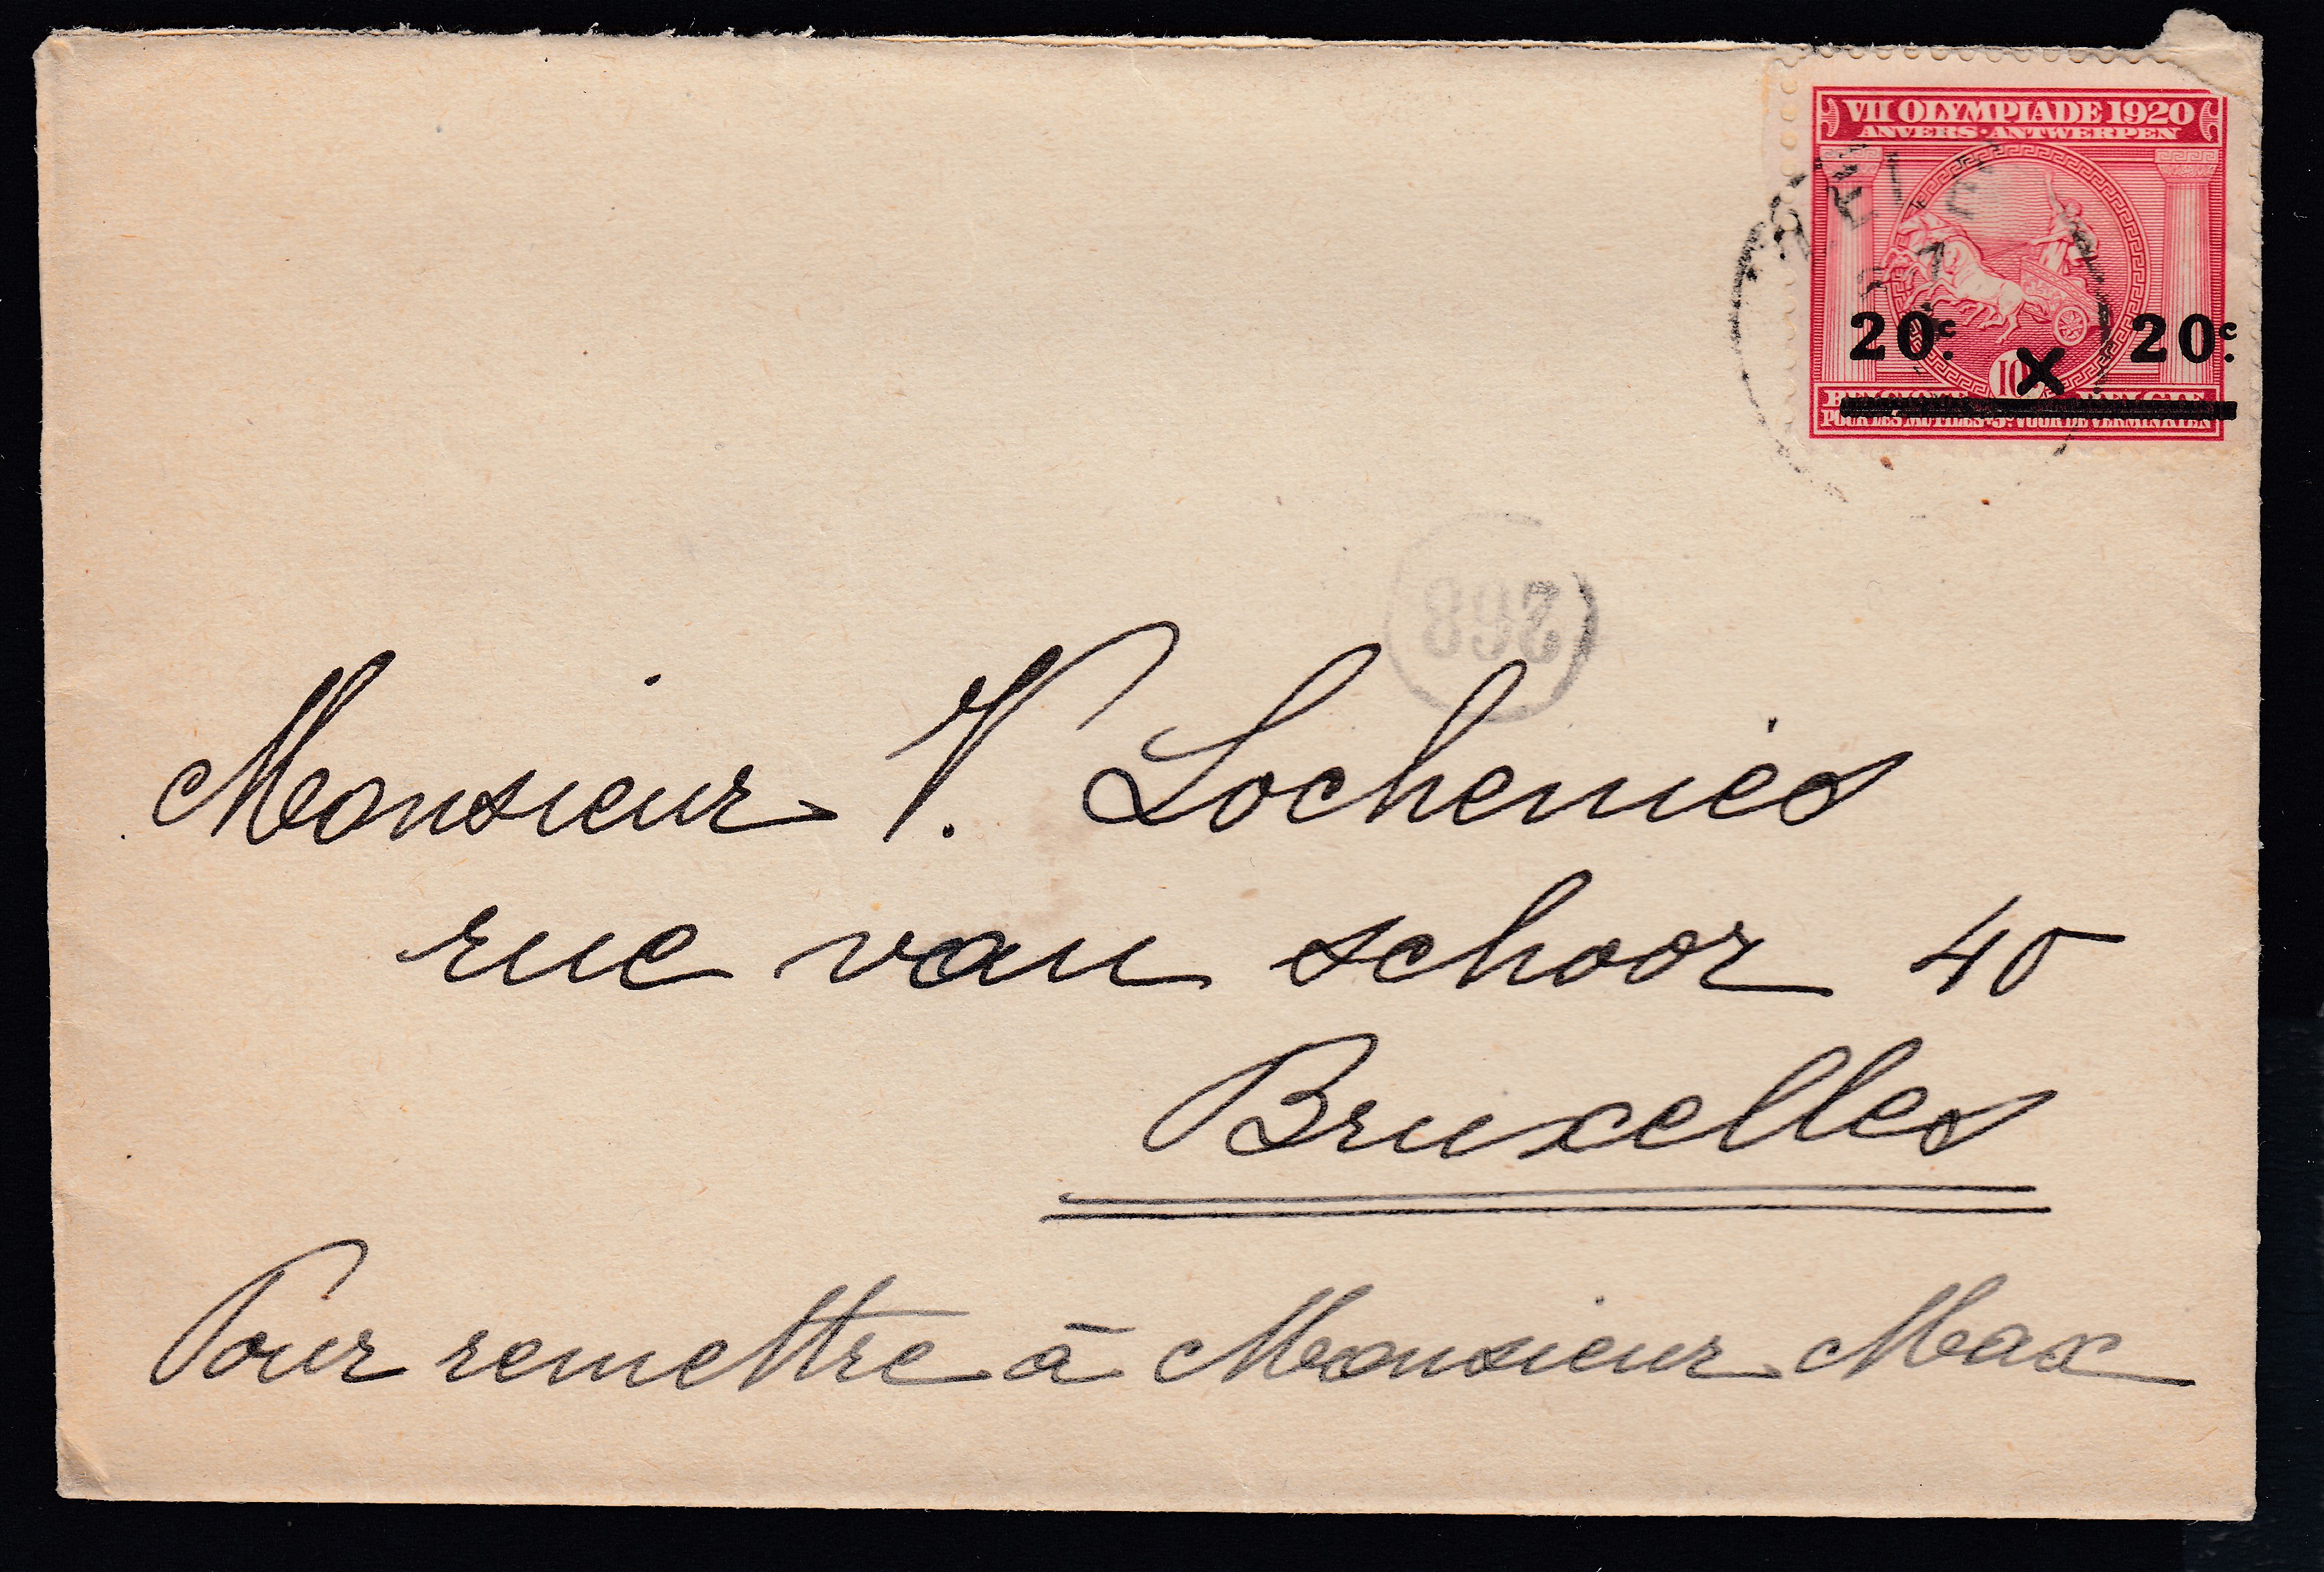 VII OLYMPIADE 1920
ANVERS·ANTWERPEN
20c. 20c.
10
POUR LES MUTILÉS·5c·VOOR DE VERMINKTEN
268
Monsieur V. Lochenies
rue van schoor 40
Bruxelles
Pour remettre à Monsieur Max